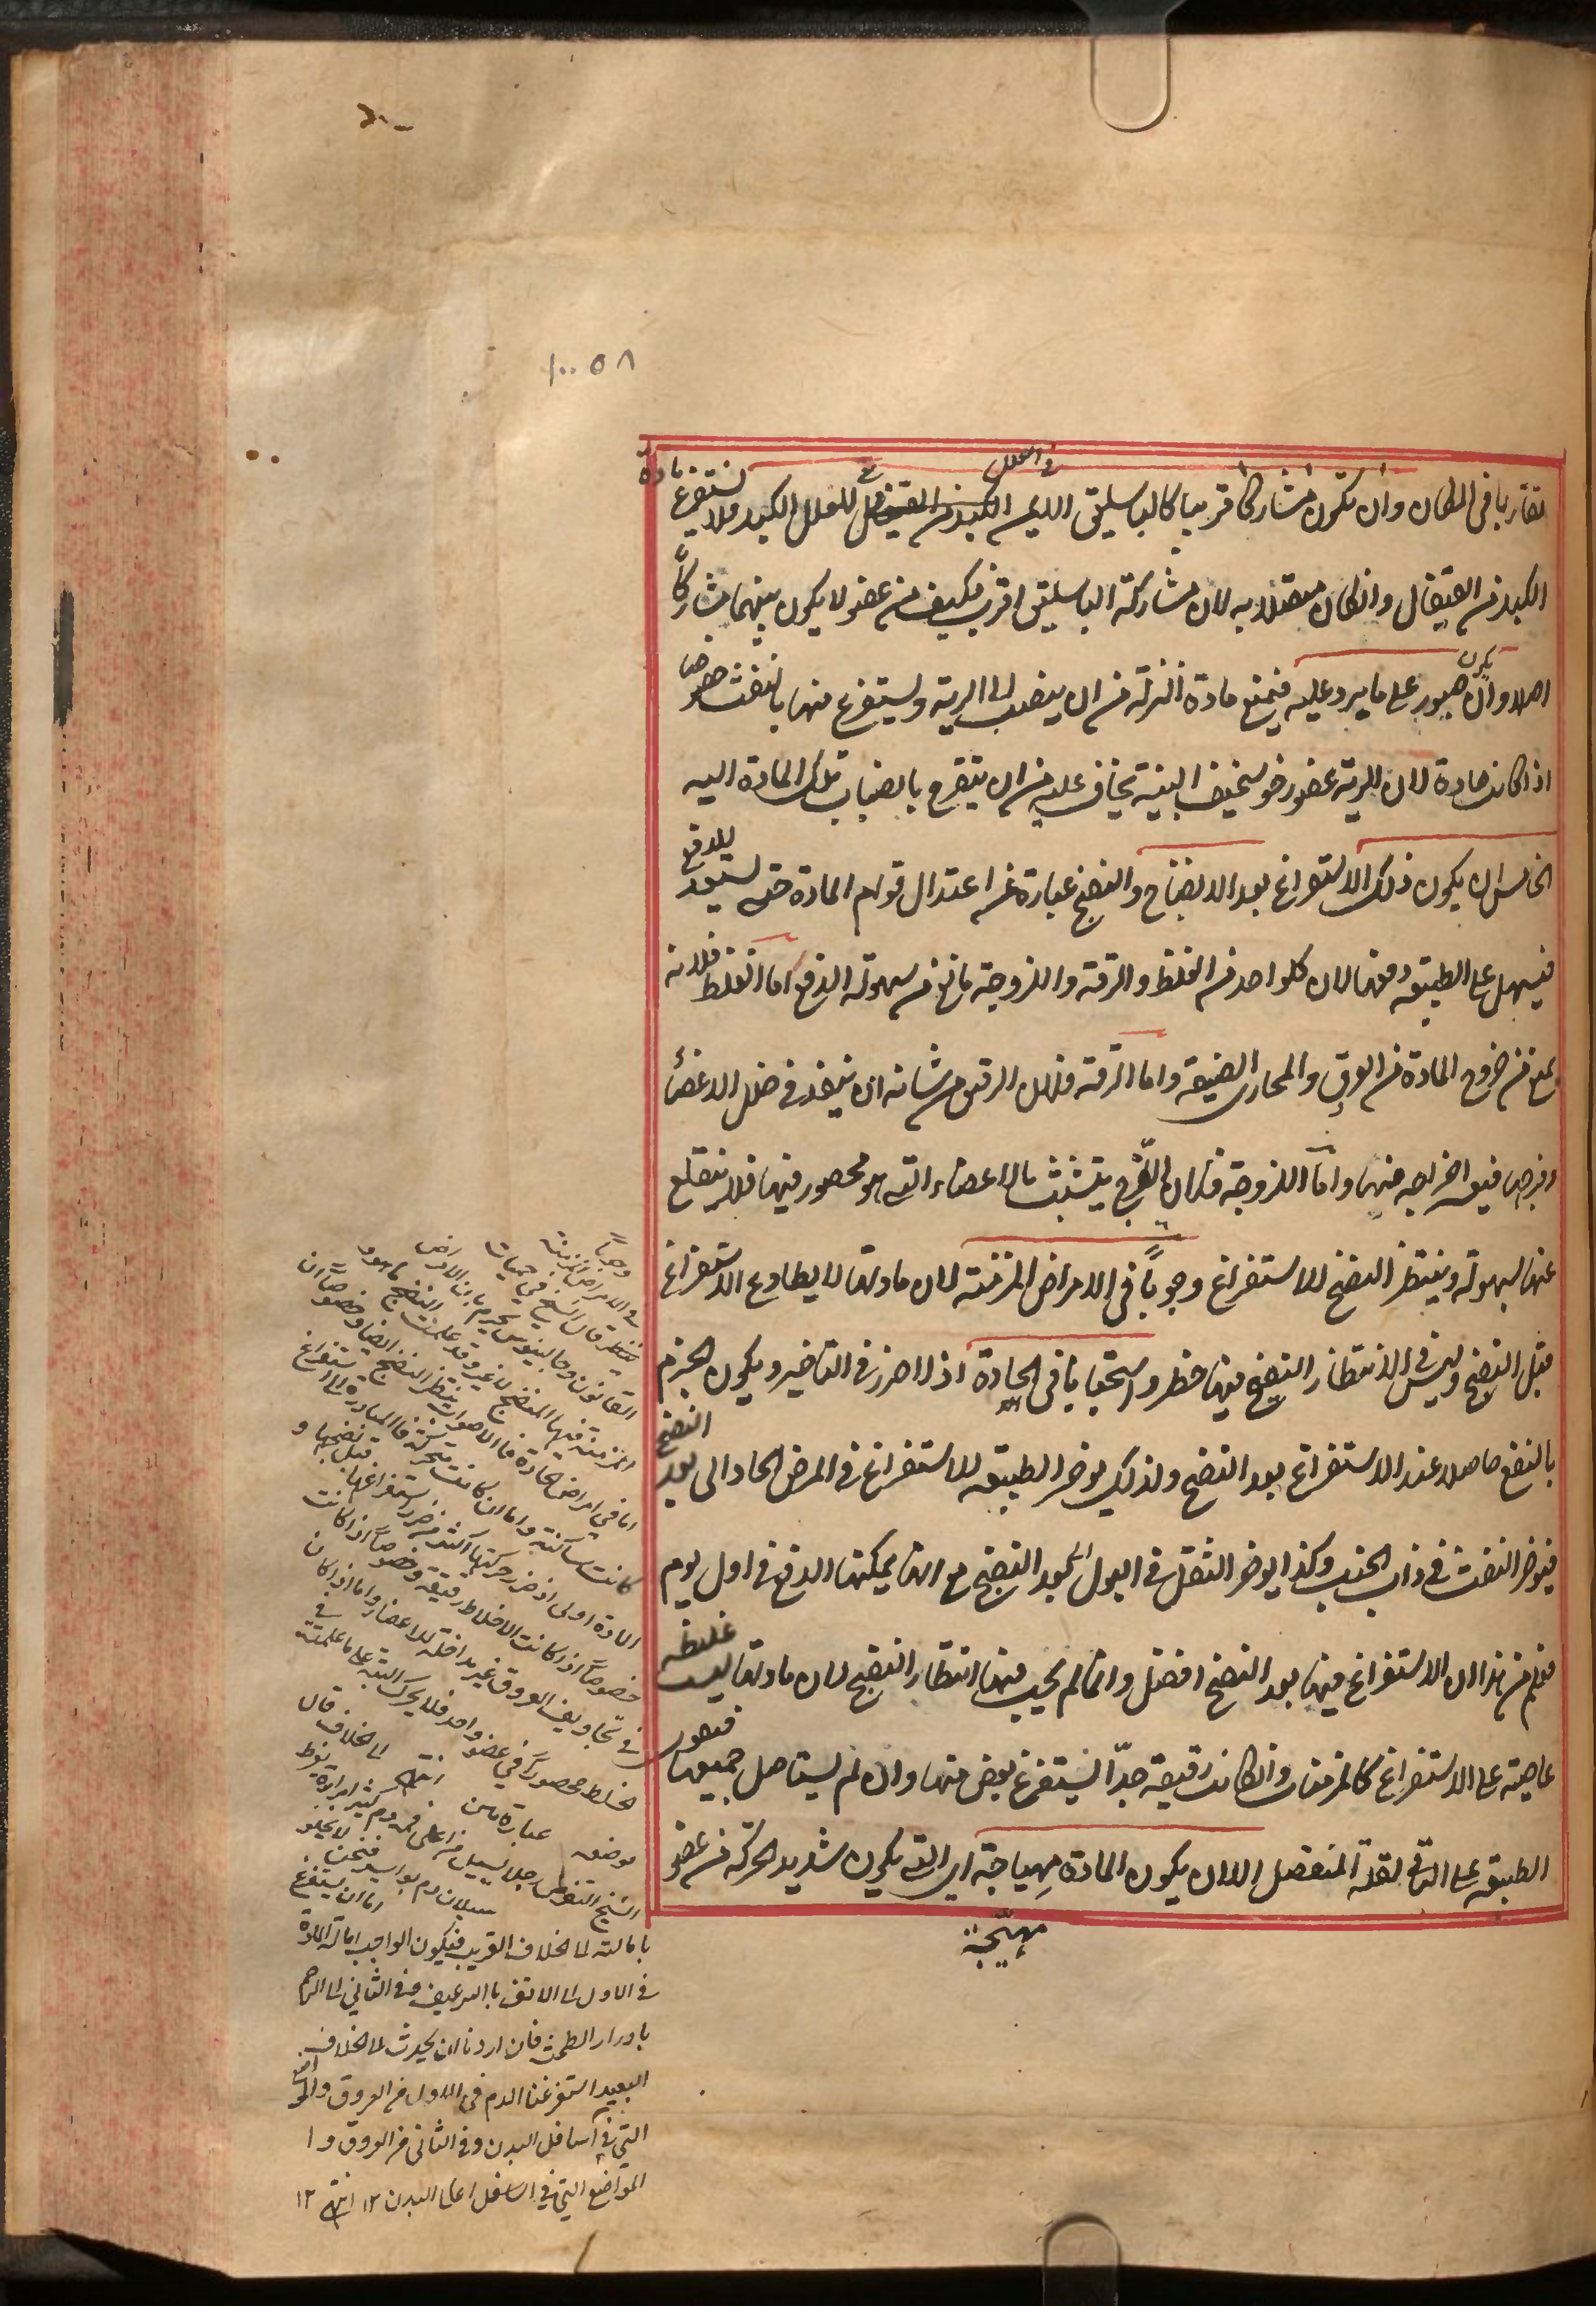 ١٠٠٥٨
تقاربا فى المكان وان تكون مشاركا قريبا كالباسليق الايمن للعلل الكبد فلا يستفرغ مادة
الكبد من القيفال وان كان متصلا به لان مشاركة الباسليق اقرب فكيف من عضو لا يكون بينهما مشاركة
اصلا وان يكون صبور على ما يرد عليه فيمنع مادة النزلة من ان ينصب الى الرية ويستفرغ منها بالنفث خصوصا
اذا كانت حادة لان الرية عضو رخو سخيف البنية يخاف عليه من ان يتقرح بانصباب تلك المادة اليه
الخامس ان يكون ذلك الاستفراغ بعد الانضاج والنضج عبارة عن اعتدال قوام المادة حتى يستعد للدفع
فيسهل على الطبيعة دفعها لان كلواحد من الغلظ والرقة واللزوجة مانع من سهولة الدفع اما الغلظ فلانه
يمنع من خروج المادة من العروق والمجارى الضيقة واما الرقة فلان الرقيق من شانه ان ينفذ فى خلل الاعضاء
وفرجها فيعسر اخراجه منها واما اللزوجة فلان اللزج يتشبث بالاعضاء التى هو محصور فيها فلا ينقلع
عنها بسهولة وينتظر النضج للاستفراغ وجوباً فى الامراض المزمنة لان مادتها لا يطاوع الاستفراغ
قبل النضج وليس فى الانتظار النضج فيها خطر واستحبابا فى الحادة اذ لا ضرر فى التاخير ويكون الجزم
بالنفع حاصلا عند الاستفراغ بعد النضج ولذلك يوخر الطبيعة الاستفراغ فى المرض الحاد الى بعد النضج
فيوخر النفث فى ذات الجنب وكذا يوخر الثفل فى البول الى بعد النضج مع انها يمكنها الدفع فى اول يوم
فعلم من هذا ان الاستفراغ فيها بعد النضج افضل وانما لم يجب فيها انتظار النضج لان مادتها ليست غليظة
عاصية على الاستفراغ كالمزمنة وان كانت رقيقة جدّا يستفرغ بعض منها وان لم يستاصل جميعها فتقوى
الطبيعة على الباقى لقلة المنفصل الا ان يكون المادة مهياجة اى التى يكون شديد الحركة من عضو
مهيّجة
وجوباً
فى الامراض المزمنة
ينتظر قال الشيخ فى حميات
القانون وجالينوس يجزم بان الامراض
المزمنة فيها النضج لا غير وقد علمت النضج ما هو
اما فى امراض الحادة فالاصوب ان ينتظر النضج ايضا وخصوصاً ان
كانت ساكنة واما ان كانت متحركة فالمبادرة الى استفراغ
المادة اولى اذ ضرر حركتها اكثر من ضرر استفراغها قبل نضجها و
خصوصاً اذا كانت الاخلاط رقيقة وخصوصاً اذا كانت
فى تجاويف العروق غير مداخلة للاعضاء واما اذا كان
الخلط محصوراً فى عضو واحد فلا يحرك البتة على ما علمته فى
موضعه انتهى
عبارة الى الخلاف قال
الشيخ رجل يسيل من اعلى فمه دم كثير امراة يفرط
سيلان دم بواسير فنحن لا يخلو
اما ان يستفرغ
بامالته الى الخلاف القريب فيكون الواجب امالة المادة
فى الاول الى الانف بالترعيف وفى الثانى الى الرحم
بادرار الطمث فان اردنا ان يحدث الى الخلاف
البعيد استفرغنا الدم فى الاول من العروق والمواضع
التى فى اسافل البدن وفى الثانى من العروق و ا
المواضع التى فى اعلى البدن ١٢ انتهى ١٢